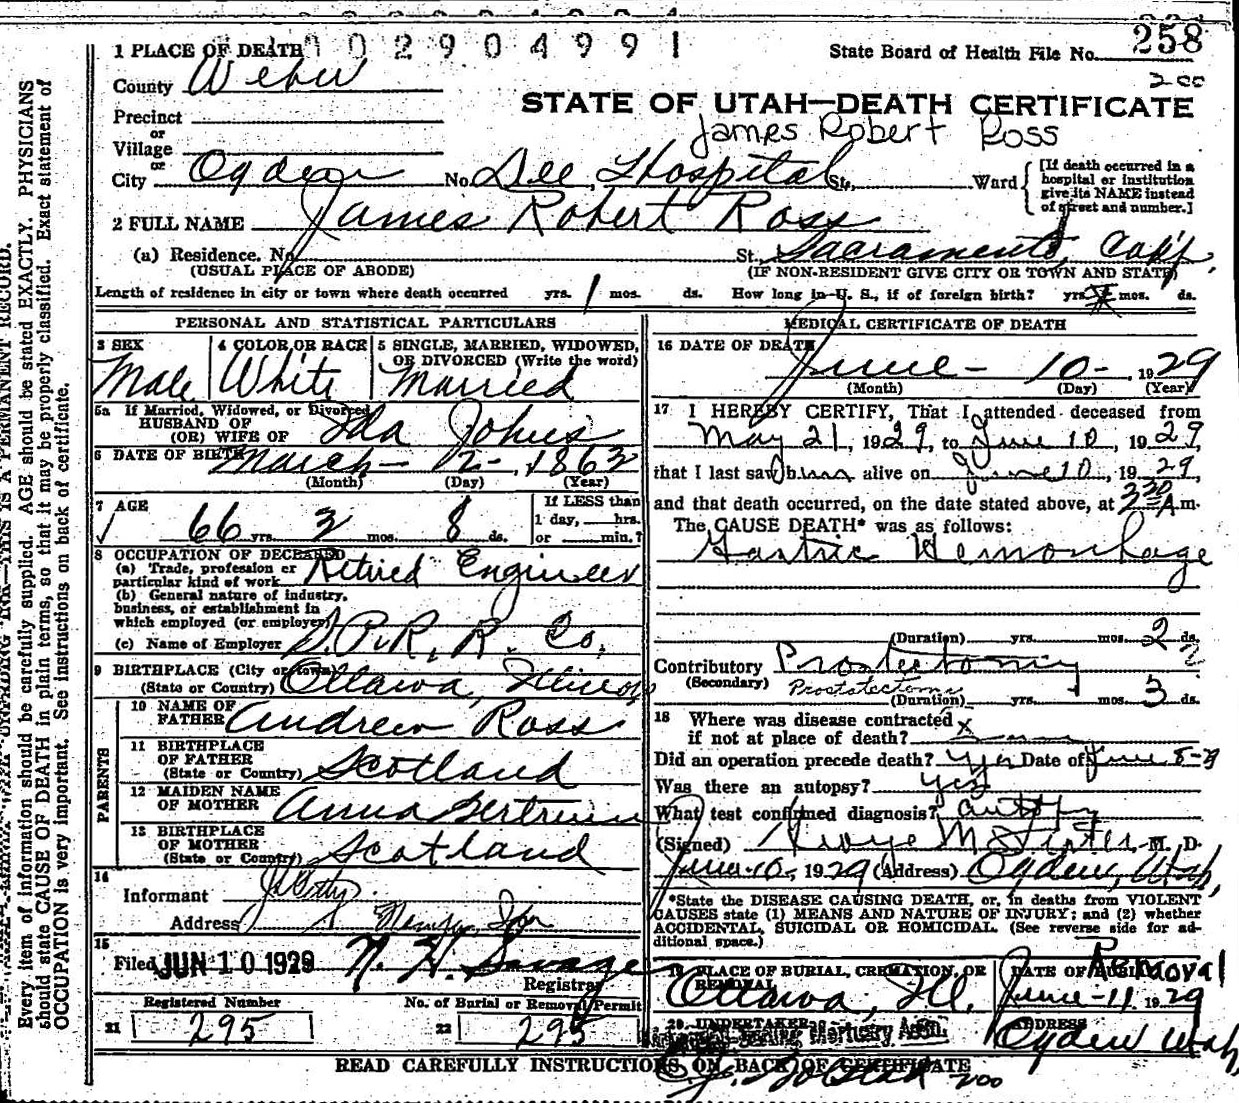 1 PLACE OF DEATH 002904991
State Board of Health File No. 258
County Weber
200
STATE OF UTAH—DEATH CERTIFICATE
Precinct
James Robert Ross
or
Village
or
City Ogden No. Dee Hospital St., Ward
[If death occurred in a hospital or institution give its NAME instead of street and number.]
2 FULL NAME James Robert Ross
(a) Residence. No. St. Sacramento,
(USUAL PLACE OF ABODE) (IF NON-RESIDENT GIVE CITY OR TOWN AND STATE)
Length of residence in city or town where death occurred yrs. 1 mos. ds. How long in U. S., if of foreign birth? yrs. mos. ds.
PERSONAL AND STATISTICAL PARTICULARS
3 SEX 4 COLOR OR RACE 5 SINGLE, MARRIED, WIDOWED, OR DIVORCED (Write the word)
Male White Married
5a If Married, Widowed, or Divorced
HUSBAND OF
(OR) WIFE OF Ida Johns
6 DATE OF BIRTH March - 2 -, 1863
(Month) (Day) (Year)
7 AGE 66 yrs. 3 mos. 8 ds.
If LESS than
1 day, hrs.
or min.?
8 OCCUPATION OF DECEASED
(a) Trade, profession or
particular kind of work Retired Engineer
(b) General nature of industry,
business, or establishment in
which employed (or employer)
(c) Name of Employer S. P. R. R. Co.
9 BIRTHPLACE (City or town)
(State or Country) Ottawa, Illinois
PARENTS
10 NAME OF
FATHER Andrew Ross
11 BIRTHPLACE
OF FATHER
(State or Country) Scotland
12 MAIDEN NAME
OF MOTHER Anna
13 BIRTHPLACE
OF MOTHER
(State or Country) Scotland
14
Informant
Address
15
Filed JUN 10 1929 N. H. Savage
Registrar
Registered Number No. of Burial or Removal Permit
21 295 22 295
MEDICAL CERTIFICATE OF DEATH
16 DATE OF DEATH
June - 10 - , 1929
(Month) (Day) (Year)
17 I HEREBY CERTIFY, That I attended deceased from
May 21, 1929, to June 10, 1929
that I last saw him alive on June 10, 1929,
and that death occurred, on the date stated above, at 3 30 A m.
The CAUSE DEATH* was as follows:
Gastric Hemorrhage
(Duration) yrs. mos. 2 ds.
Contributory Prostectomy
(Secondary) (Duration) yrs. mos. 3 ds.
18 Where was disease contracted
if not at place of death? x
Did an operation precede death? yes Date of June
Was there an autopsy? yes
What test confirmed diagnosis? autopsy
(Signed) M. D.
June 10, 1929 (Address) Ogden, Utah,
*State the DISEASE CAUSING DEATH, or, in deaths from VIOLENT
CAUSES state (1) MEANS AND NATURE OF INJURY; and (2) whether
ACCIDENTAL, SUICIDAL OR HOMICIDAL. (See reverse side for ad-
ditional space.)
19 PLACE OF BURIAL, CREMATION, OR
REMOVAL
Ottawa, Ill.
DATE OF BURIAL Removal
June - 11 1929
20. UNDERTAKER
ADDRESS
Ogden Utah
200
READ CAREFULLY INSTRUCTIONS ON BACK OF CERTIFICATE
Every item of information should be carefully supplied. AGE should be stated EXACTLY. PHYSICIANS
should state CAUSE OF DEATH in plain terms, so that it may be properly classified. Exact statement of
OCCUPATION is very important. See instructions on back of certificate.